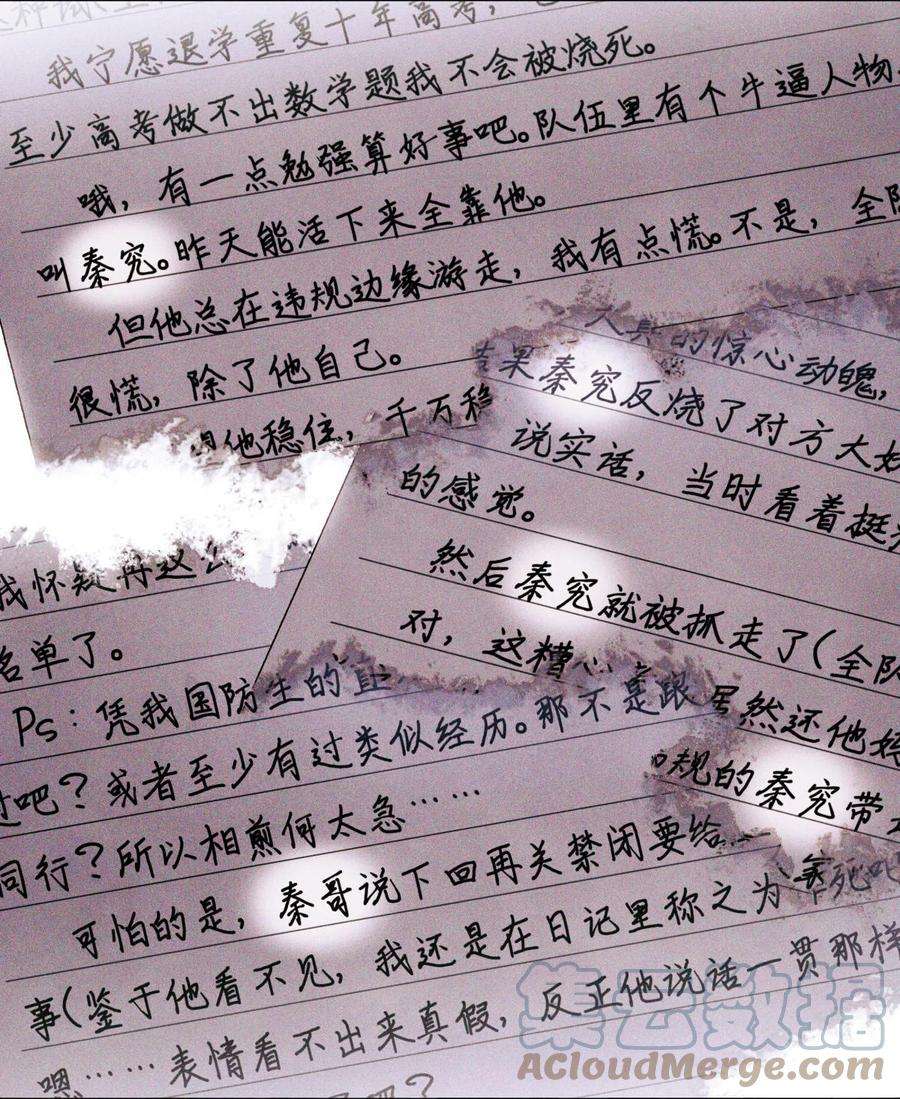 我宁愿退学重复十年高考，
至少高考做不出数学题我不会被烧死。
哦，有一点勉强算好事吧。队伍里有个牛逼人物，
叫秦究。昨天能活下来全靠他。
但他总在违规边缘游走，我有点慌。不是，全队
很慌，除了他自己。
他稳住，千万稳
的惊心动魄，
果秦究反烧了对方大
说实话，当时看着挺
的感觉。
然后秦究就被抓走了（全队
对，这糟心
然还他
规的秦究带
我怀疑再这么
名单了。
Ps：凭我国防生的直
过吧？或者至少有过类似经历。那不是跟
同行？所以相煎何太急……
可怕的是，秦哥说下回再关禁闭要给
事（鉴于他看不见，我还是在日记里称之为
嗯……表情看不出来真假，反正他说话一贯那样
吧？
集云数据
ACloudMerge.com